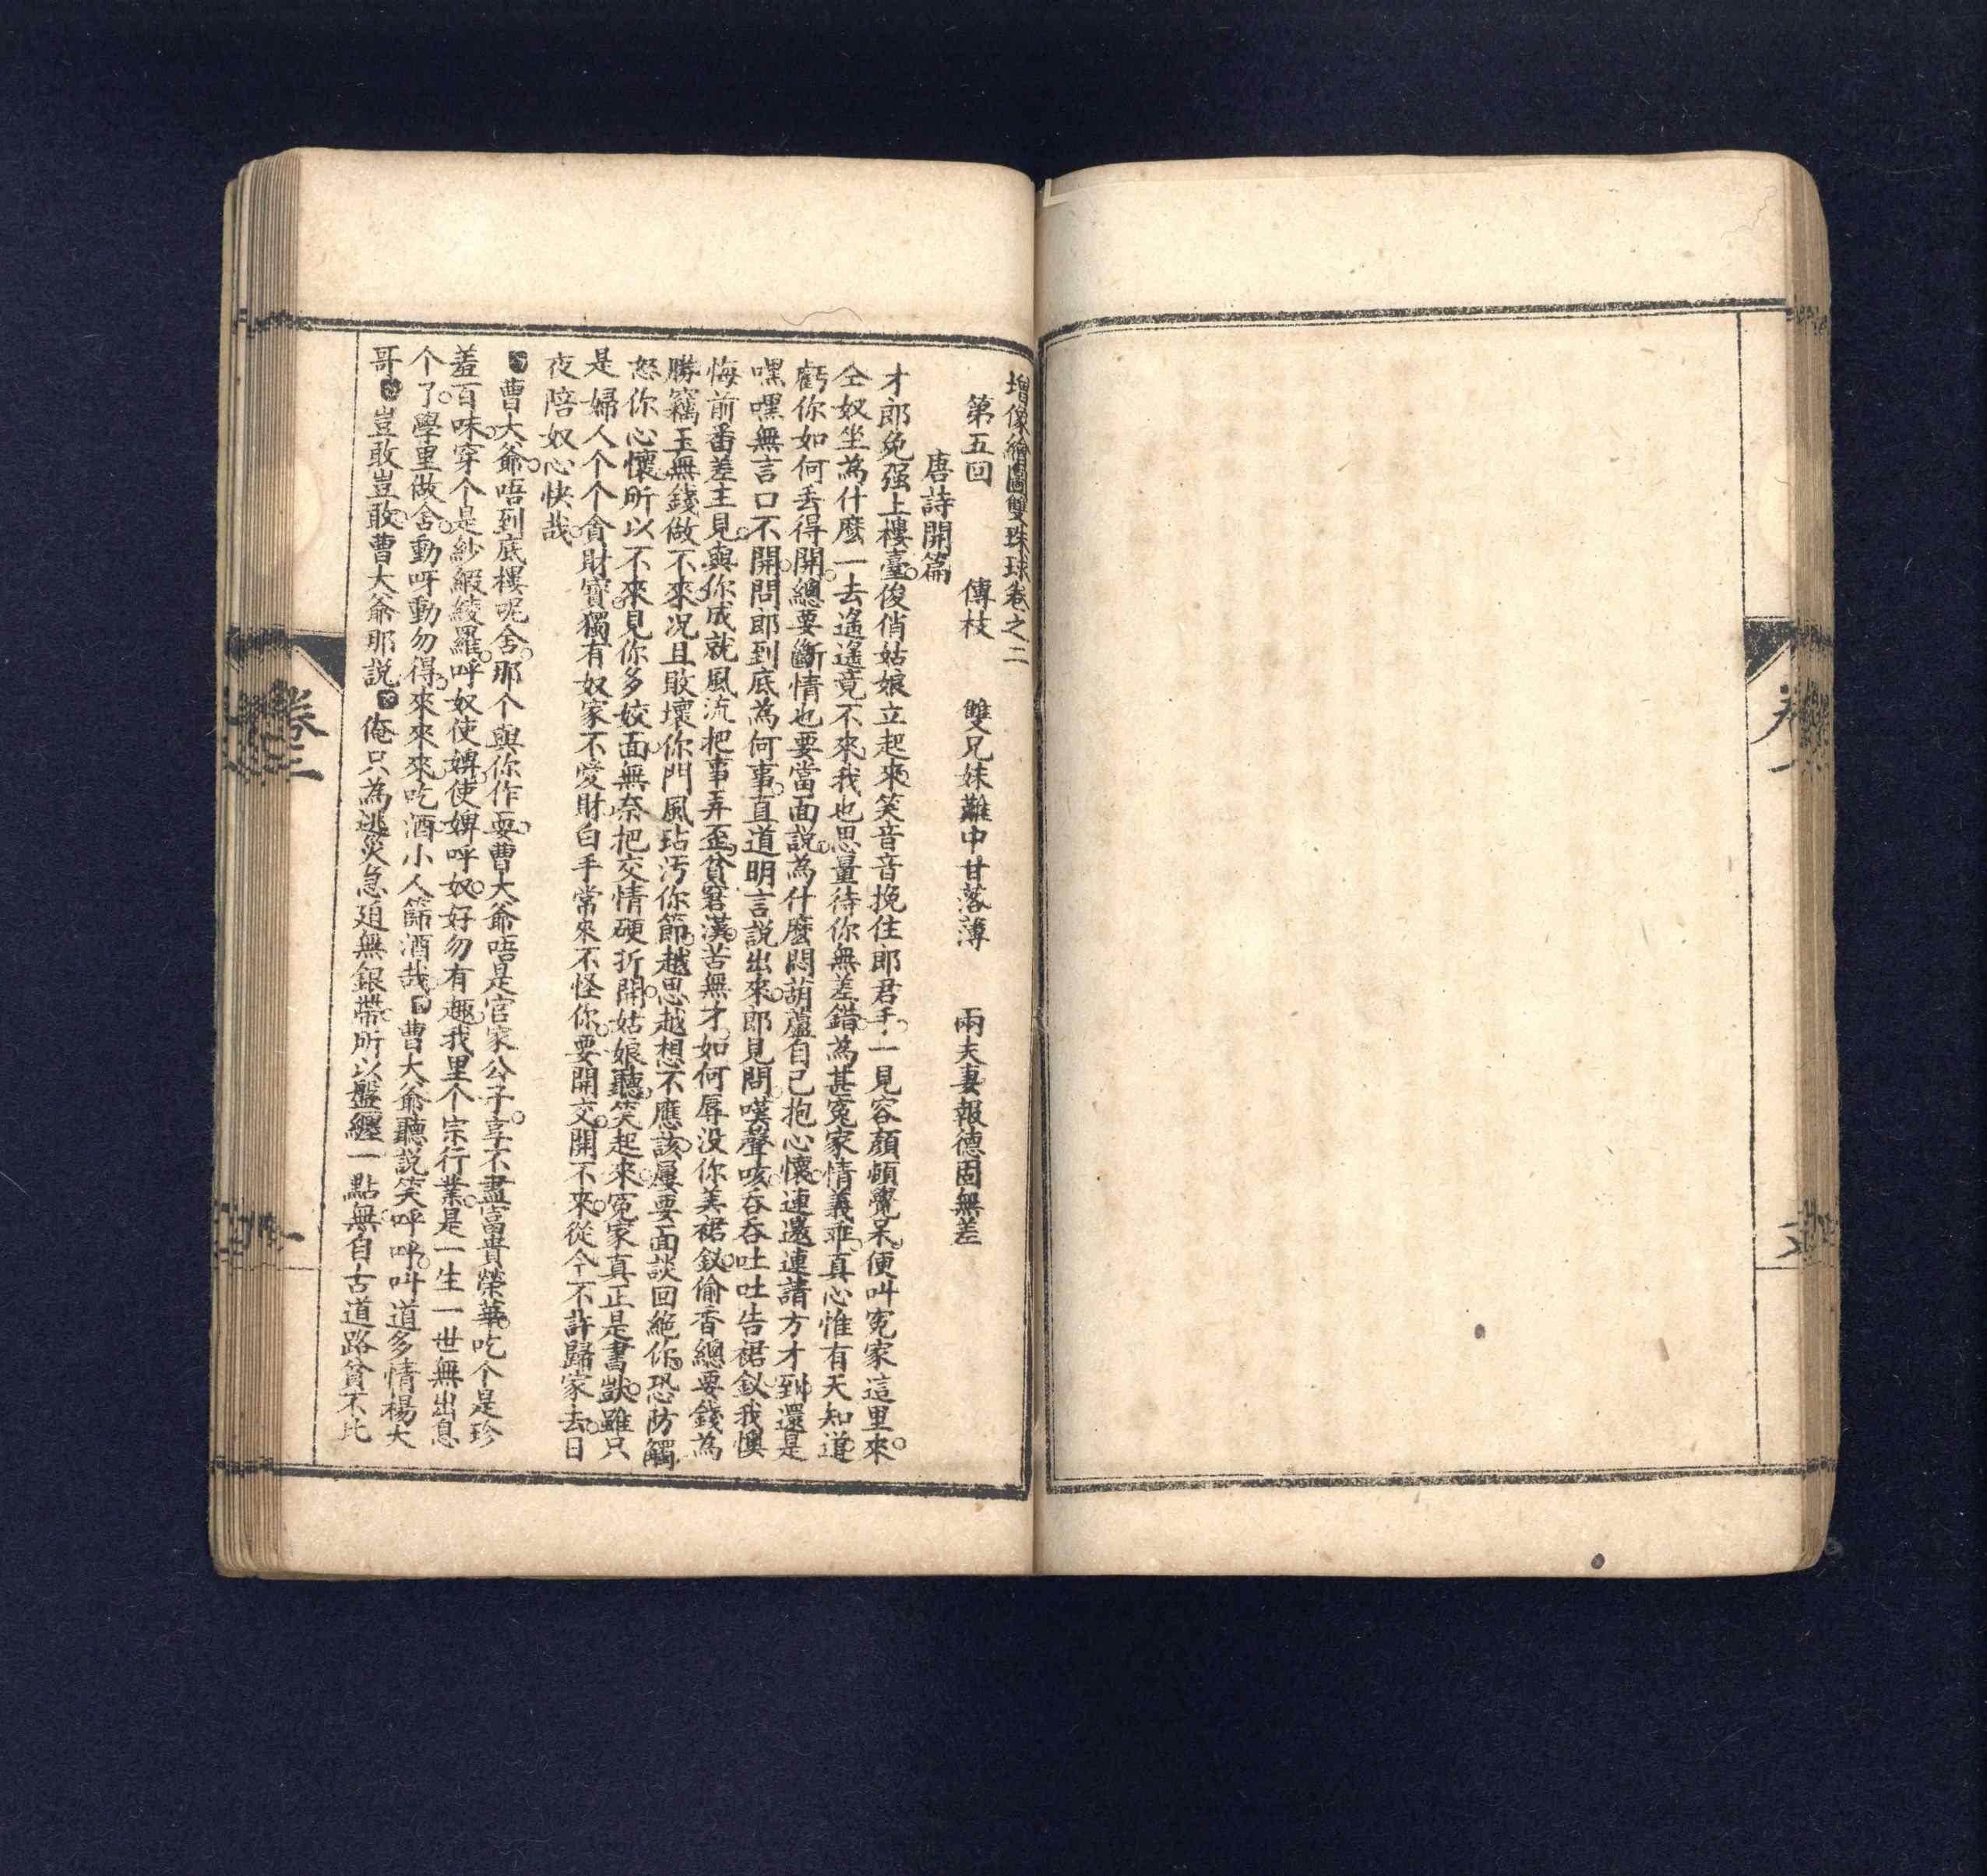 增像繪圖雙珠球卷之二
第五回 傳枝 雙兄妹難中甘落薄 兩夫妻報德固無差
唐詩開篇
才郎免强上樓臺。俊俏姑娘立起來。笑音音挽住郎君手。一見容顏頓覺呆。便叫寃家這里來。
仝奴坐為什麼一去遙遙竟不來。我也思量待你無差錯。為甚寃家情義乖。真心惟有天知道。
虧你如何丢得開。總要斷情也要當面說。為什麼悶葫蘆自己抱心懷。連邀連請方才到。還是
嘿嘿無言口不開。問郎到底為何事。直道明言說出來。郎見問。嘆聲咳。吞吞吐吐告裙釵。我懊
悔前番差主見。與你成就風流把事弄歪。貧窘漢。苦無才。如何辱没你美裙釵。偷香總要錢為
勝。竊玉無錢做不來。况且敗壞你門風玷汚你節。越思越想不應該。屢要面談回絶你。恐防觸
怒你心懷。所以不來見你多姣面。無奈把交情硬折開。姑娘聽。笑起來。寃家真正是書獃。雖只
是婦人个个貪財寶。獨有奴家不愛財。白手常來不怪你。要開交。開不來。從今不許歸家去。日
夜陪奴心快哉。
曹大爺。唔到底樓呢舍。那个與你作耍。曹大爺唔是官家公子。享不盡富貴榮華。吃个是珍
羞百味。穿个是紗緞綾羅。呼奴使婢。使婢呼奴。好勿有趣。我里个宗行業。是一生一世無出息
个了。學里做舍。動呀動勿得。來來來。吃酒。小人篩酒哉。曹大爺聽說笑呼呼。叫道多情楊大
哥。豈敢豈敢。曹大爺那說。俺只為逃災急廹無銀帶。所以盤纏一點無。自古道路貧不比
卷二
一